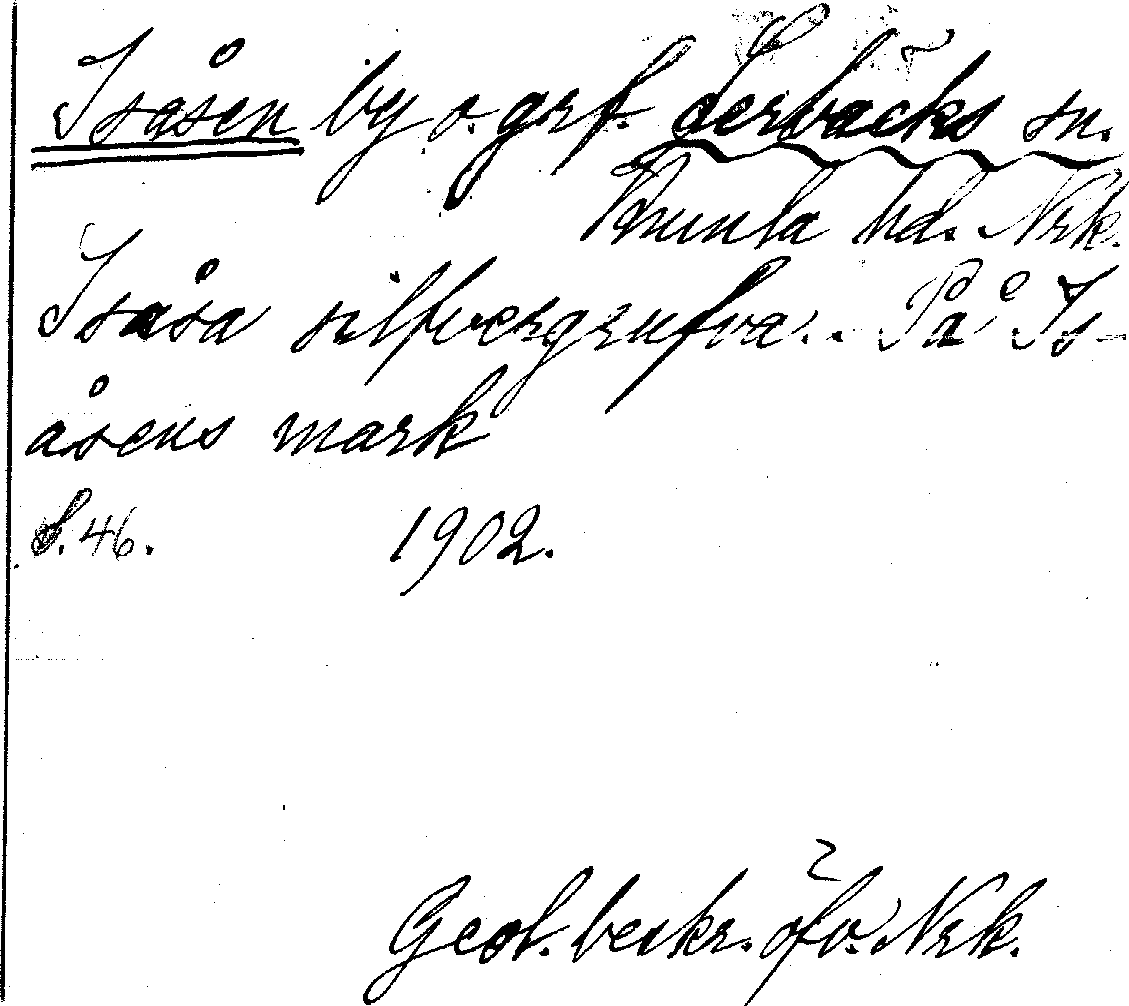 Isåsen by o. grf. Lerbäcks sn.
Kumla hd. Nrk.
Isåsa silfvergrufva. På Is-
åsens mark
S. 46. 1902.
Geol. beskr. öfv. Nrk.